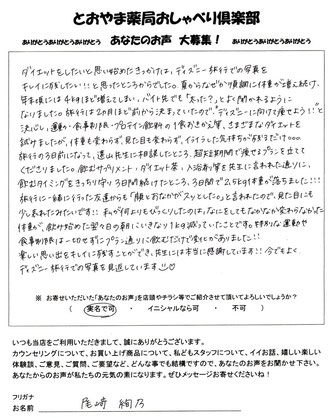 とおやま薬局おしゃべり倶楽部
ありがとうありがとうありがとう あなたのお声 大募集! ありがとうありがとうありがとう
ダイエットをしたいと思い始めたきっかけは、ディズニー旅行での写真を
キレイに残したい!!と思ったところからでした。夏からなぜか順調に体重が増え続け、
年末頃には4kgほど増えてしまい、バイト先でも"太った?"とよく聞かれるように
なりました。旅行は2カ月ほど前から決まっていたので、"ディズニーに向けて痩せよう!!"と
決心し、運動・食事制限・プロテイン飲料の1食おきかえ等、さまざまなダイエットを
試みましたが、体重も変わらず、見た目も変わらず、イライラした気持ちが残るだけ…。
旅行の3日前になって、遠山先生に相談したところ、超短期間で痩せるプランを立てて
くださいました。飲むサプリメント・ダイエット茶・入浴剤等を先生に言われた通りに、
飲むタイミングをきっちり守り3日間続けたところ、3日間で2.5kg体重が落ちました!!!
旅行に一緒に行った友達からも「顔とおなかがスッとした」と言われたので、見た目にも
少し表れたみたいです!! 私が何よりもびっくりしたのは、なにをしてもなかなか変わらなかった
体重が、飲み始めた翌々日の朝にいきなり1kg減っていたことです。特別な運動や
食事制限は一切せずにプラン通りに飲むだけで変化がありました!!
楽しい思い出をキレイに残すことができ、先生には本当に感謝しています!!今でもよく
ディズニー旅行での写真を見返しています
※ お寄せいただいた「あなたのお声」を店頭やチラシ等でご紹介させて頂いてよろしいでしょうか?
( 実名で可 ・ イニシャルなら可 ・ 不可 )
いつも当店をご利用いただきまして、誠にありがとうございます。
カウンセリングについて、お買い上げ商品について、私どもスタッフについて、イイお話、嬉しい楽しい
体験談、ご意見、ご質問、ご要望など、どんな事でも結構ですので、あなたのお声をお聞かせ下さい。
あなたからのお声が私たちの元気の素になります。ぜひメッセージご寄せくださいね!
フリガナ
お名前 尾崎 絢乃